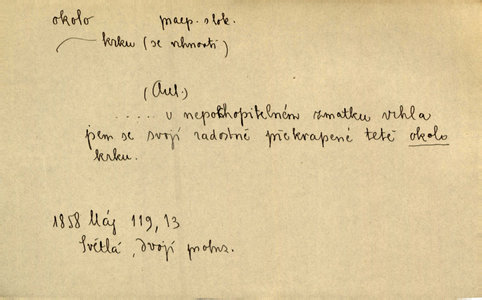 okolo praep. s lok.
krku (se vrhnouti)
(Aut.)
..... v nepochopitelném zmatku vrhla
jsem se svojí radostně překvapené tetě okolo
krku.
1858 Máj 119, 13
Světlá, Dvojí probuz.